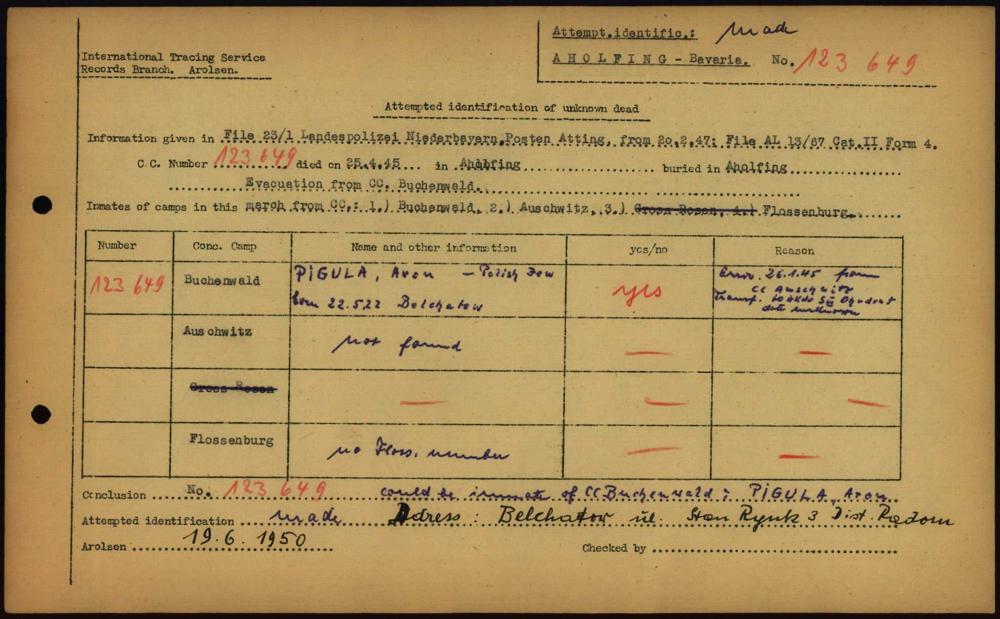 Attempt.identific.: made
International Tracing Service
Records Branch. Arolsen.
AHOLFING - Bavaria. No. 123 649
Attempted identification of unknown dead
Information given in File 23/1 Landespolizei Niederbayern, Posten Atting, from 20.2.47: File AL 13/67 Cat.II Form 4.
C.C. Number 123 649 died on 25.4.45 in Aholfing buried in Aholfing
Evacuation from CC. Buchenwald.
Inmates of camps in this march from CC.: 1.) Buchenwald, 2.) Auschwitz, 3.) Gross Rosen, 4.) Flossenburg.
Number Conc. Camp Name and other information yes/no Reason
123 649 Buchenwald PIGULA, Aron - Polish Jew
born 22.5.22 Belchatow
yes
Error. 26.1.45 from
CC Auschwitz
Transf. to Akdo S III Ohrdruf
date unknown
Auschwitz not found — —
Gross Rosen — — —
Flossenburg no Floss. number — —
Conclusion No. 123 649 could be inmate of CC Buchenwald: PIGULA, Aron
Attempted identification made Adress: Belchatow ul. Stary Rynek 3 Dist. Radom
Arolsen 19.6.1950 Checked by